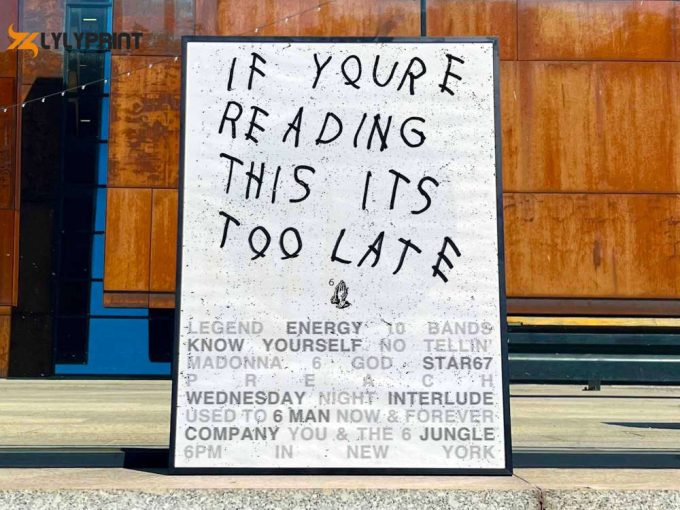 LYLYPRINT
IF YOURE
READING
THIS ITS
TOO LATE
6
LEGEND ENERGY 10 BANDS
KNOW YOURSELF NO TELLIN'
MADONNA 6 GOD STAR67
PREACH
WEDNESDAY NIGHT INTERLUDE
USED TO 6 MAN NOW & FOREVER
COMPANY YOU & THE 6 JUNGLE
6PM IN NEW YORK